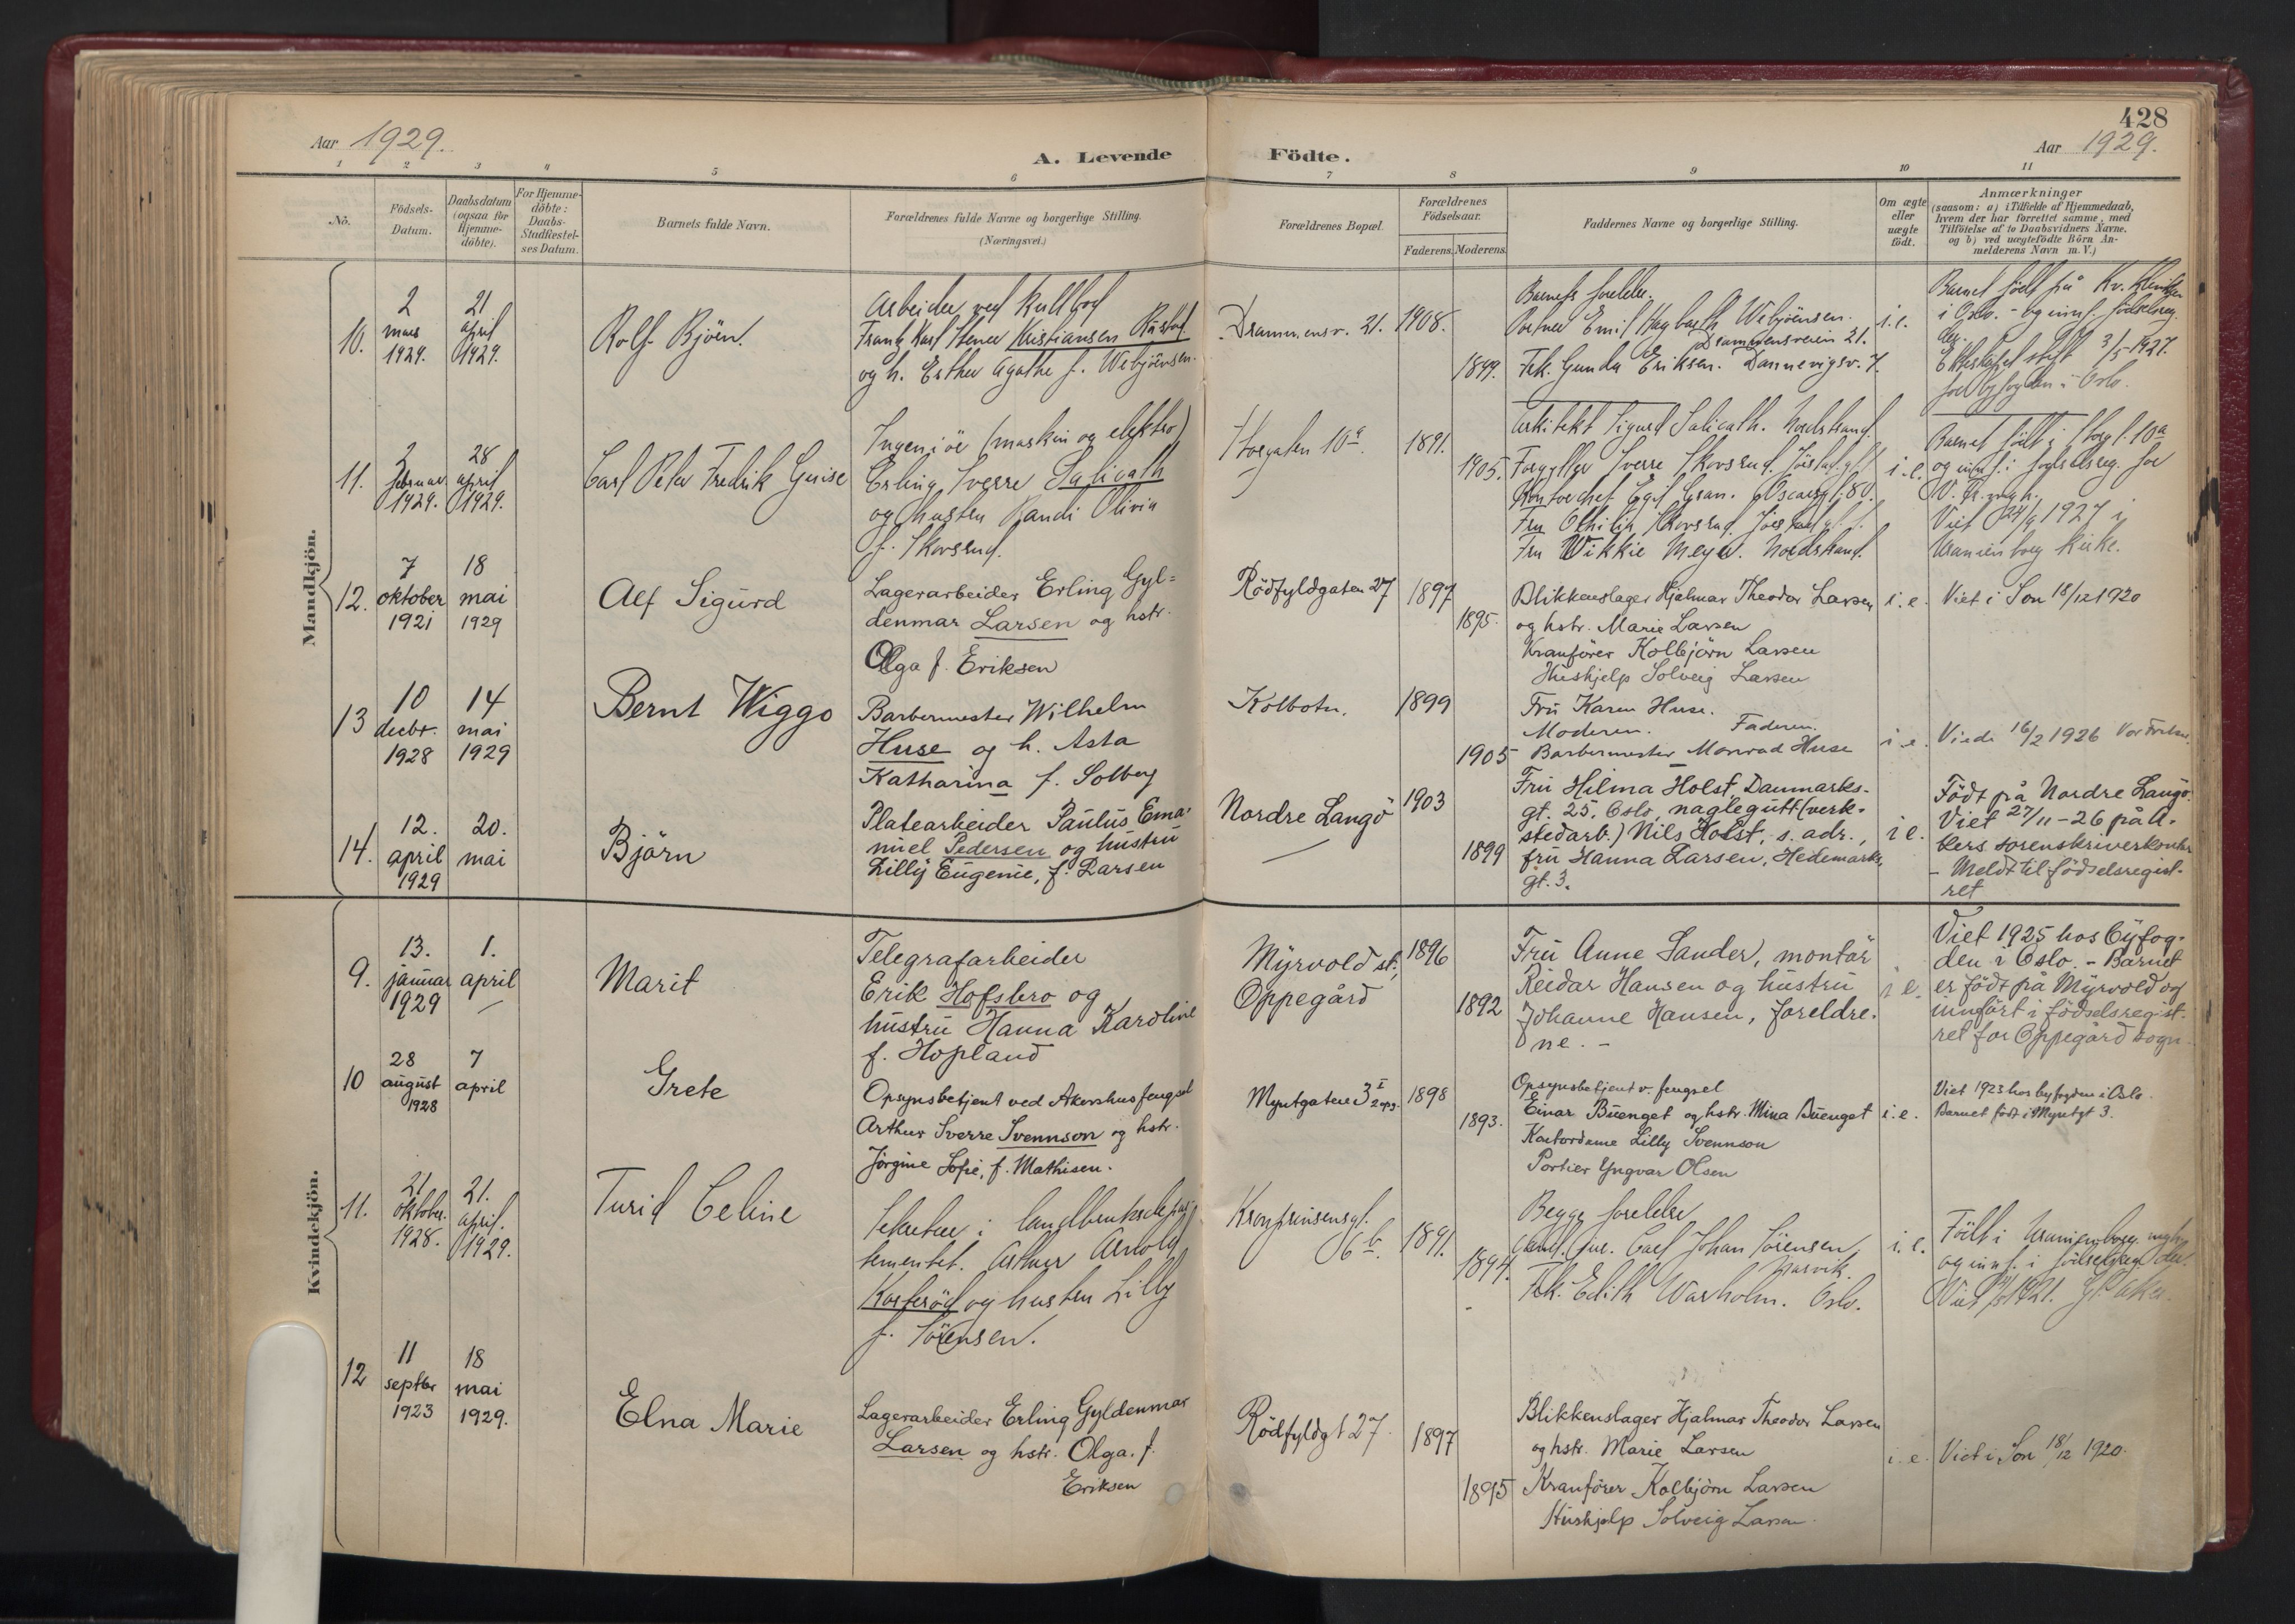 428
Aar 1929.
A. Levende Födte.
Aar 1929.
1 2 3 4 5 6 7 8 9 10 11
No.
Födsels-Datum.
Daabsdatum (ogsaa for Hjemmedöbte).
For Hjemmedöbte: Daabs-Stadfestelses Datum.
Barnets fulde Navn.
Forældrenes fulde Navne og borgerlige Stilling. (Næringsvei.)
Forældrenes Bopæl.
Forældrenes Födselsaar.
Faderens. Moderens.
Faddernes Navne og borgerlige Stilling.
Om ægte eller uægte födt.
Anmærkninger
(saasom: a) i Tilfælde af Hjemmedaab,
hvem der har forrettet samme, med
Tilföielse af to Daabsvidners Navne.
og b) ved uægtefödte Börn An-
melderens Navn m. V.)
Mandkjön.
10.
2 mars 1929.
21 april 1929.
Rolf Björn.
Arbeider ved
Frantz Karl Stener Kristiansen
og h. Esther Agathe f. Webjörnsen.
Drammensv. 21.
1908.
1899.
Barnets foreldre.
Emil Webjörnsen.
Drammensveien 21.
Frk. Gunda Eriksen. Dannevigsv. 7.
i.e.
Barnet födt på Kv. klinikken
i Oslo. - og innf. födselsreg.
der.
Ekteskapet stift. 3/5-1927.
for byfogden i Oslo.
11.
2 februar 1929.
28 april 1929.
Carl Peter Fredrik Guise
Ingeniör (maskin og elektro)
Erling Sverre Salicath
og hustru Randi Olivia
f. Skovsrud.
Storgaten 10a.
1891.
1905.
Arkitekt Sigurd Salicath. Nordstrand.
Forgyller Sverre Skovsrud.
Kontorchef Egil Gran. Oscarsgt. 80.
Fru Othilia Skovsrud.
Fru Wikkie Meyer. Nordstrand.
i.e.
Barnet födt i Storgt. 10a
og innf. i födselsreg. for
Viet 1927 i
Uranienborg kirke.
12.
7 oktober 1921
18 mai 1929
Alf Sigurd
Lagerarbeider Erling Gyl=
denmar Larsen og hstr.
Olga f. Eriksen
Rödfyldgaten 27
1897
1895.
Blikkenslager Hjalmar Theodor Larsen
og hstr. Marie Larsen
Kranförer Kolbjörn Larsen
Hushjelp Solveig Larsen
i.e.
Viet i Son 18/12 1920
13
10 decbr. 1928
14 mai 1929
Bernt Wiggo
Barbermester Wilhelm
Huse og h. Asta
Katharina f. Solberg
Kolbotn.
1899
1905
Fru Karen Huse.
Moderen. Faderen.
Barbermester Monrad Huse
i.e.
Viede 16/2 1926 Vor Frelser.
14.
12. april 1929
20. mai
Björn
Platearbeider Paulus Ema-
nuel Pedersen og hustru
Lilly Eugenie, f. Larsen
Nordre Langö
1903
1899
Fru Hilma Holst, Danmarks-
gt. 25, Oslo, naglegutt (verk-
stedarb.) Nils Holst, s. adr.,
fru Hanna Larsen, Hedemarks-
gt. 3.
i e.
Födt på Nordre Langö.
Viet 27/11-26 på A-
kers sorenskriverkontor
- Meldt til födselsregist-
ret
Kvindekjön.
9.
13. januar 1929
1. april
Marit
Telegrafarbeider
Erik Hofsbro og
hustru Hanna Karoline
f. Hopland
Myrvold st,
Oppegård
1896
1892
Fru Anne Sander, montör
Reidar Hansen og hustru
Johanne Hansen, foreldre-
ne. -
i e.
Viet 1925 hos Byfog-
den i Oslo. - Barnet
er födt på Myrvold og
innfört i födselsregist-
ret for Oppegård sogn.
10
28 august 1928
7 april
Grete
Opsynsbetjent ved Akershus fengsel
Arthur Sverre Svennson og hstr.
Jörgine Sofie, f. Mathisen.
Myntgaten 3 I 2 opg.
1898
1893.
Opsynsbetjent v. fengsel
Einar Buenget og hstr. Mina Buenget
Kontordame Lilly Svennson
Portier Yngvar Olsen
i.e.
Viet 1923 hos byfogden i Oslo.
Barnet födt i Myntgt 3.
11.
21 oktober. 1928.
21. april. 1929.
Turid Celine
Sekretær i landbruksdepar-
tementet. Arthur Arnold
Korteröd og hustru Lilly
f. Sörensen.
Kronprinsensgt. 6b.
1891.
1894.
Begge foreldre
Cand. jur. Carl Johan Sörensen,
Narvik.
Frk. Edith Warholm. Oslo.
i.e.
Födt i Uranienborg mgh.
og innf. i födselsreg. der.
Viet 1921. Gl. Aker.
12
11 septbr 1923
18 mai 1929.
Elna Marie
Lagerarbeider Erling Gyldenmar
Larsen og hstr. Olga. f.
Eriksen
Rödfyldgt 27.
1897
1895
Blikkenslager Hjalmar Theodor Larsen
og hstr. Marie Larsen
Kranförer Kolbjörn Larsen
Hushjelp Solveig Larsen.
i.e.
Viet i Son 18/12 1920.